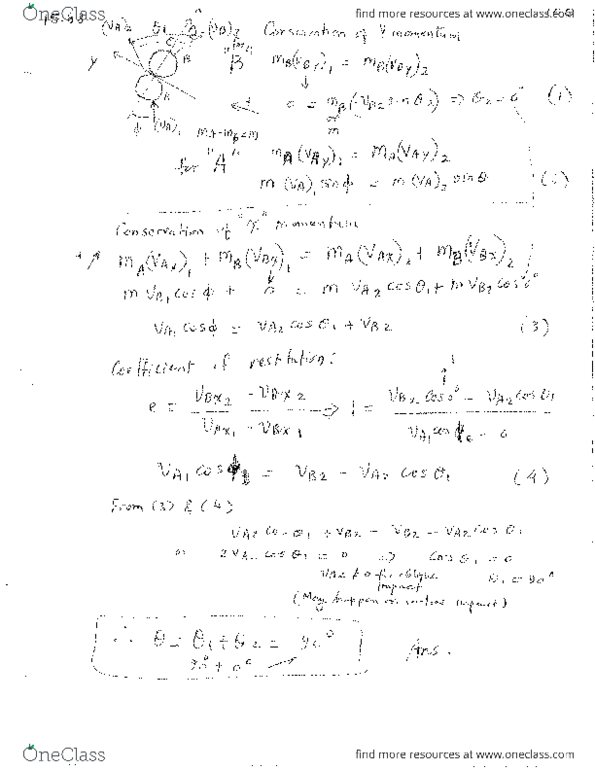 OneClass
find more resources at oneclass.com
(VA)2 θ1 θ2 (VB)2 Conservation of Y momentum
y B "B" mB(VBy)1 = mB(VBy)2
0 = mB(-VB2 sin θ2) => θ2 = 0° (1)
m
(VA)1 mA=mB=m
for "A" mA(VAy)1 = mA(VAy)2
m(VA)1 sinϕ = m(VA)2 sinθ
Conservation of "X" momentum
+ ↗ mA(VAx)1 + mB(VBx)1 = mA(VAx)2 + mB(VBx)2
m VB1 cosϕ + 0 = m VA2 cosθ1 + m VB2 cos0°
VA1 cosϕ = VA2 cosθ1 + VB2 (3)
Coefficient of restitution:
e = VBx2 - VBx2 / VAx1 - VBx1 => 1 = VB2 cos0° - VA2 cosθ1 / VA1 cosϕ - 0
VA1 cosϕ = VB2 - VA2 cosθ1 (4)
From (3) & (4)
VA2 cosθ1 + VB2 = VB2 - VA2 cosθ1
or 2VA2 cosθ1 = 0 => cosθ1 = 0
VA2 ≠ 0 for oblique θ1 = 90°
impact
(May happen in central impact)
∴ θ = θ1 + θ2 = 90° Ans.
90° + 0°
OneClass
find more resources at oneclass.com